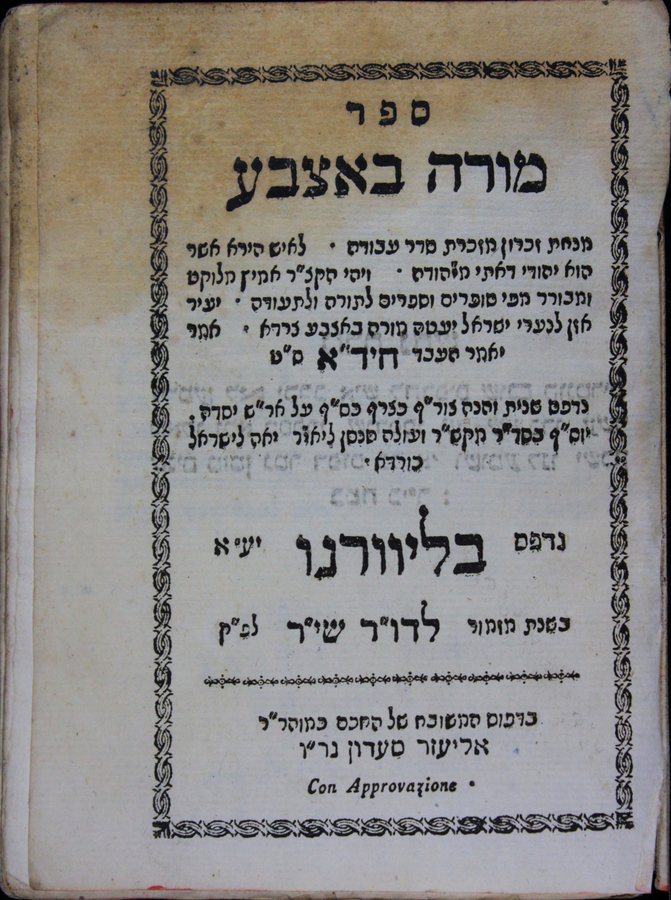 ספר
מורה באצבע
מנחת זכרון מזכרת סדר עבודה · לאיש הירא אשר
הוא יהודי דאתי מיהודה · ויהי הקצ״ר אמיץ מלוקט
ומבורר מפי סופרים וספרים לתורה ולתעודה · יעיר
אזן לנערי ישראל יעטה מורה באצבע צרדא · אמר
יאמר העבד חיד״א ס״ט
נדפס שנית והנה צור״ף בצרף כס״ף על אר״ש יסדה
יוס״ף בסד״ר מקש״ר ועולה שנסן ליאור יאה לישראל
כורדא ·
נדפס בליוורנו יע״א
בשנת מזמור לדו״ד שי״ר לפ״ק
בדפוס המשובח של החכם כמוהר״ר
אליעזר סעדון נר״ו
Con Approvazione ·